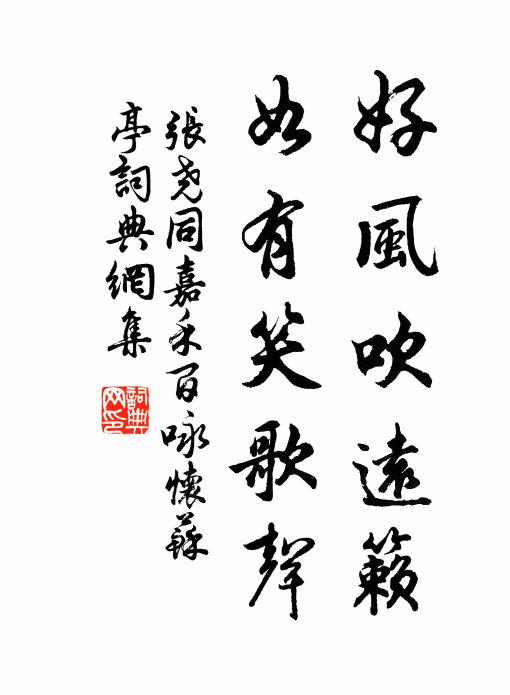 好風吹遠籟
如有笑歌聲
張堯同嘉禾百咏懷蘇
亭詞典網集
詞典
网印